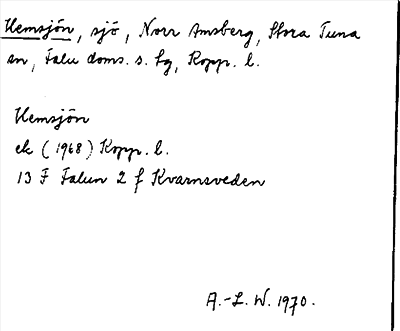 Hemsjön, sjö, Norr Amsberg, Stora Tuna
sn, Falu doms. s. tg, Kopp. l.
Hemsjön
ek (1968) Kopp. l.
13 F Falun 2 f Kvarnsveden
A.-L. W. 1970.